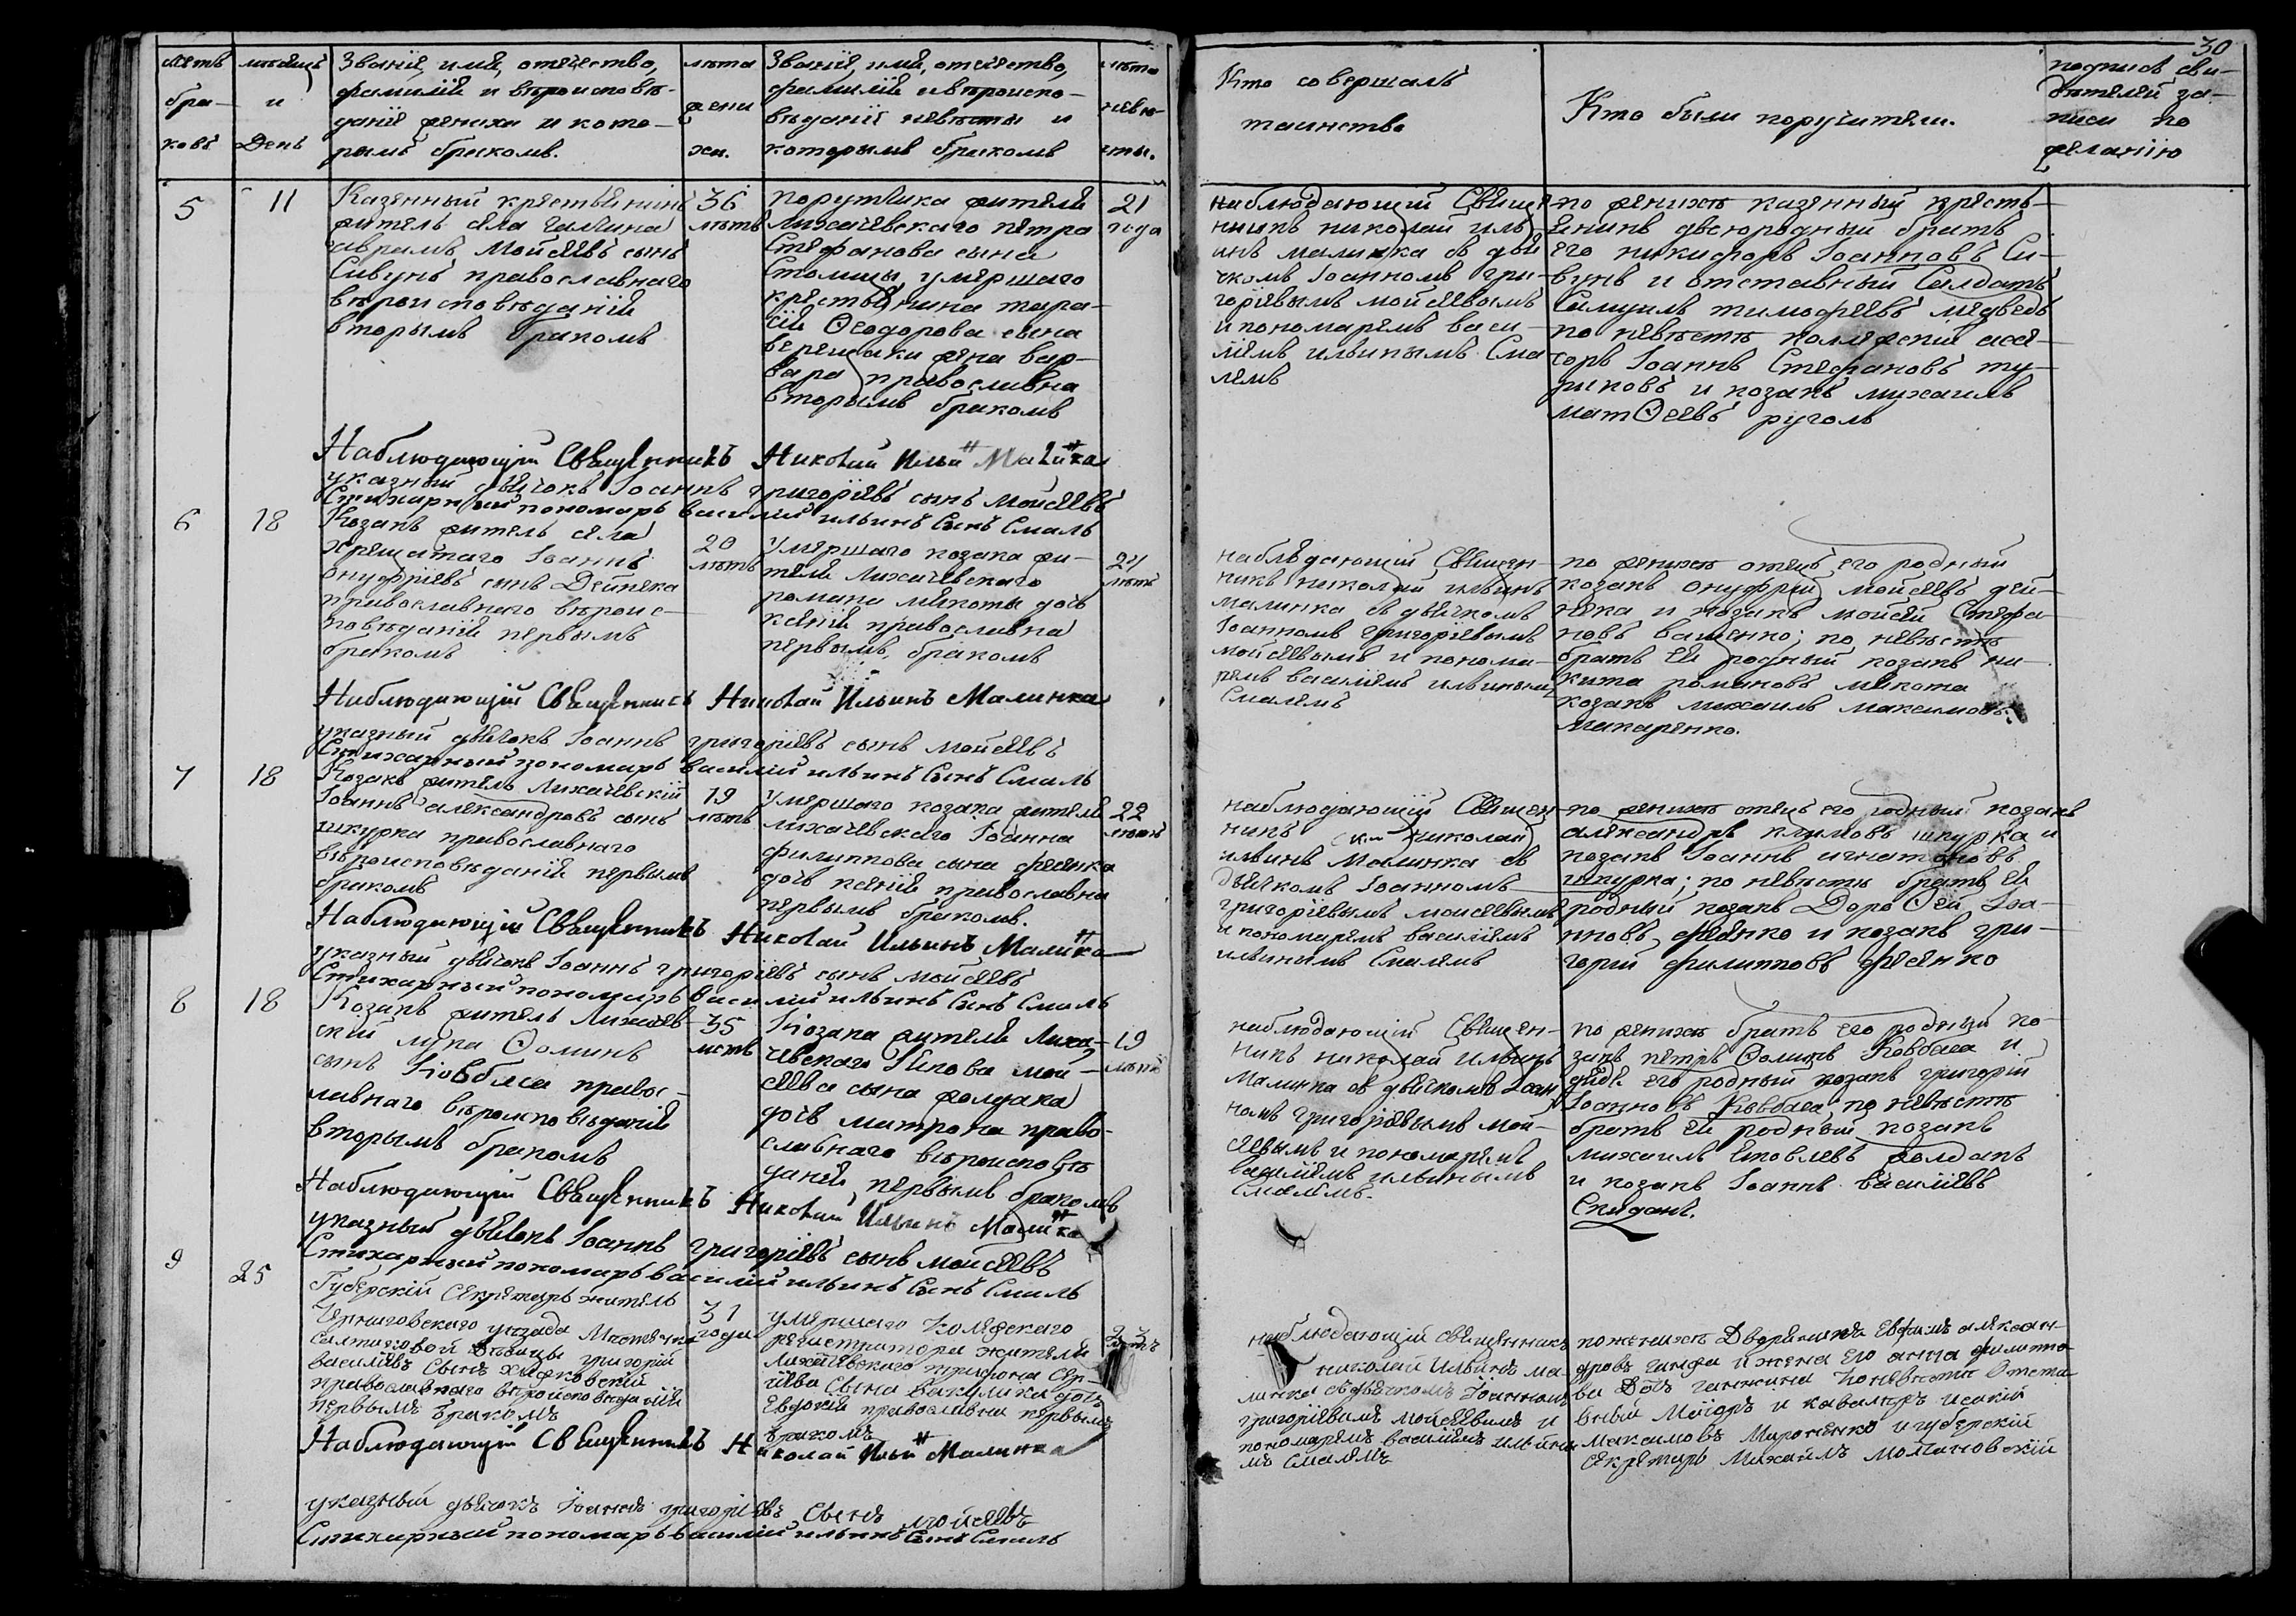 30
Кто совершалъ
таинство
Кто были поручители.
подписъ сви-
дѣтелей за-
писи по
желанію
бра-
ковъ
и
День
Званіе, имя, отечество,
фамилія и вѣроисповѣ-
даніе жениха и кото-
рымъ бракомъ.
лѣта
жени
ха.
Званіе, имя, отечество,
фамилія и вѣроиспо-
вѣданіе невѣсты и
которымъ бракомъ
лѣта
невѣ-
сты.
5
11
Казенный крестьянинъ
житель села
Моисеевъ сынъ
Сивунъ православнаго
вѣроисповѣданія
вторымъ бракомъ
36
лѣтъ
порутчика жителя
Лихачевскаго Петра
Стефанова сына
Столицы, умершаго
крестьянина тара-
сія Ѳеодорова сына
верещаки жена вар-
вара православна
вторымъ бракомъ
21
года
наблюдающій Священ-
никъ николай иль-
инъ малинка съ дья
чкомъ Іоанномъ гри-
горіевымъ мойсеевымъ
и пономаремъ васи-
ліемъ ильинымъ Сма
лемъ
по женихѣ казенный кресть-
янинъ двоюродный братъ
его никифоръ Іоанновъ Си-
вунъ и отставный Салдатъ
Самуилъ тимофеевъ медведь
по невѣстѣ коллежскій асее-
соръ Іоаннъ Стефановъ ту-
риковъ и козакъ михаилъ
матѲеевъ руголь
Наблюдающій Священникъ Николай Ильинъ Малинка
указный дьячокъ Іоаннъ григоріевъ сынъ мойсеевъ
Стихарный пономарь василій ильинъ Сынъ Смаль
6
18
Козакъ житель села
хрещатаго Іоаннъ
онуфріевъ сынъ Дейнека
православнаго вѣроис-
повѣданія первымъ
бракомъ
20
лѣтъ
Умершаго козака жи-
теля Лихачевскаго
романа мекоты дочь
ксенія православна
первымъ бракомъ
21
лѣтъ
наблюдающій Священ-
никъ николай ильинъ
малинка съ дьячкомъ
Іоанномъ григоріевымъ
мойсеевымъ и понома-
ремъ василіемъ ильинымъ
Смалемъ
по женихѣ отецъ его родный
козакъ онуфрій мойсеевъ дей-
нека и козакъ мойсей Стефа-
новъ ващенко; по невѣстѣ
братъ ея родный козакъ ни-
кита романовъ мекота
козакъ михаилъ максимовъ
макаренко.
Наблюдающій Священникъ Николай Ильинъ Малинка
указный дьячокъ Іоаннъ григоріевъ сынъ мойсеевъ
Стихарный пономарь василій ильинъ Сынъ Смаль
7
18
Козакъ житель Лихачевскій
Іоаннъ александровъ сынъ
шкурка православнаго
вѣроисповѣданія первымъ
бракомъ
19
лѣтъ
Умершаго козака жителя
лихачевскаго Іоанна
филиппова сына фесенка
дочь ксенія православна
первымъ бракомъ.
22
лѣтъ
наблюдающій Священ-
никъ николай
ильинъ малинка съ
дьячкомъ Іоанномъ
григоріевымъ моисеевымъ
и пономаремъ василіемъ
ильинымъ Смалемъ
по женихѣ отецъ его родный козакъ
александръ климовъ шкурка и
козакъ Іоаннъ
шкурка; по невѣстѣ братъ ея
родный козакъ ДороѲей Іоа-
нновъ фесенко и козакъ гри-
горій филипповъ фесенко
Наблюдающій Священникъ Николай Ильинъ Малинка
указный дьячокъ Іоаннъ григоріевъ сынъ мойсеевъ
Стихарный пономарь василій ильинъ Сынъ Смаль
8
18
Козакъ житель Лихачев-
скій лука Ѳоминъ
сынъ Ковбаса правос-
лавнаго вѣроисповѣданія
вторымъ бракомъ
35
лѣтъ
Козака жителя Лиха-
чевскаго Якова мой-
сеева сына желдака
дочь матрона право-
славнаго вѣроисповѣ
данія первымъ бракомъ
19
лѣтъ
наблюдающій Священ-
никъ николай ильинъ
малинка съ дьячкомъ Іоан
номъ григоріевымъ мой-
сеевымъ и пономаремъ
василіемъ ильинымъ
Смалемъ.
по женихѣ братъ его родный ко-
закъ петръ Ѳоминъ Ковбаса и
дядя его родный козакъ григорій
Іоанновъ Ковбаса; по невѣстѣ
братъ ея родный козакъ
михаилъ Яковлевъ желдакъ
и козакъ Іоаннъ василіевъ
Скиданъ.
Наблюдающій Священникъ Николай Ильинъ Малинка
указный дьячокъ Іоаннъ григоріевъ сынъ мойсеевъ
Стихарный пономарь василій ильинъ Сынъ Смаль
9
25
Губерскій Секретарь житель
Черниговскаго уезда Мѣстечка
Салтыковой Дѣвицы григорій
василіевъ Сынъ
православнаго вѣроисповѣданія
первымъ бракомъ
31
года
умершаго колежскаго
регистратора жителя
лихачевскаго трифона Сер-
гіева Сына Бакулина дочь
Евдокія православна первымъ
бракомъ
наблюдающій священникъ
николай Ильинъ ма-
линка съ дьячкомъ Іоанномъ
григоріевымъ мойсеевымъ и
пономаремъ василіемъ ильины
мъ Смалемъ
по женихѣ Дворянинъ Ефимъ александ-
ровъ и жена его анна филипо-
ва Дочь по невѣстѣ Отста-
вный Маіоръ и кавалеръ исакій
максимовъ Мироненко и губерскій
секретарь Михаилъ
Наблюдающій Священникъ Николай Ильинъ Малинка
указный дьячокъ Іоаннъ григоріевъ Сынъ мойсеевъ
Стихарный пономарь василій ильинъ Сынъ Смаль